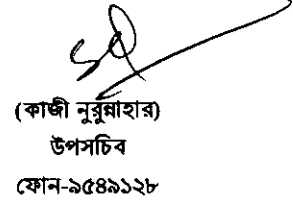 (কাজী নুরুন্নাহার)
উপসচিব
ফোন-৯৫৪৯১২৮